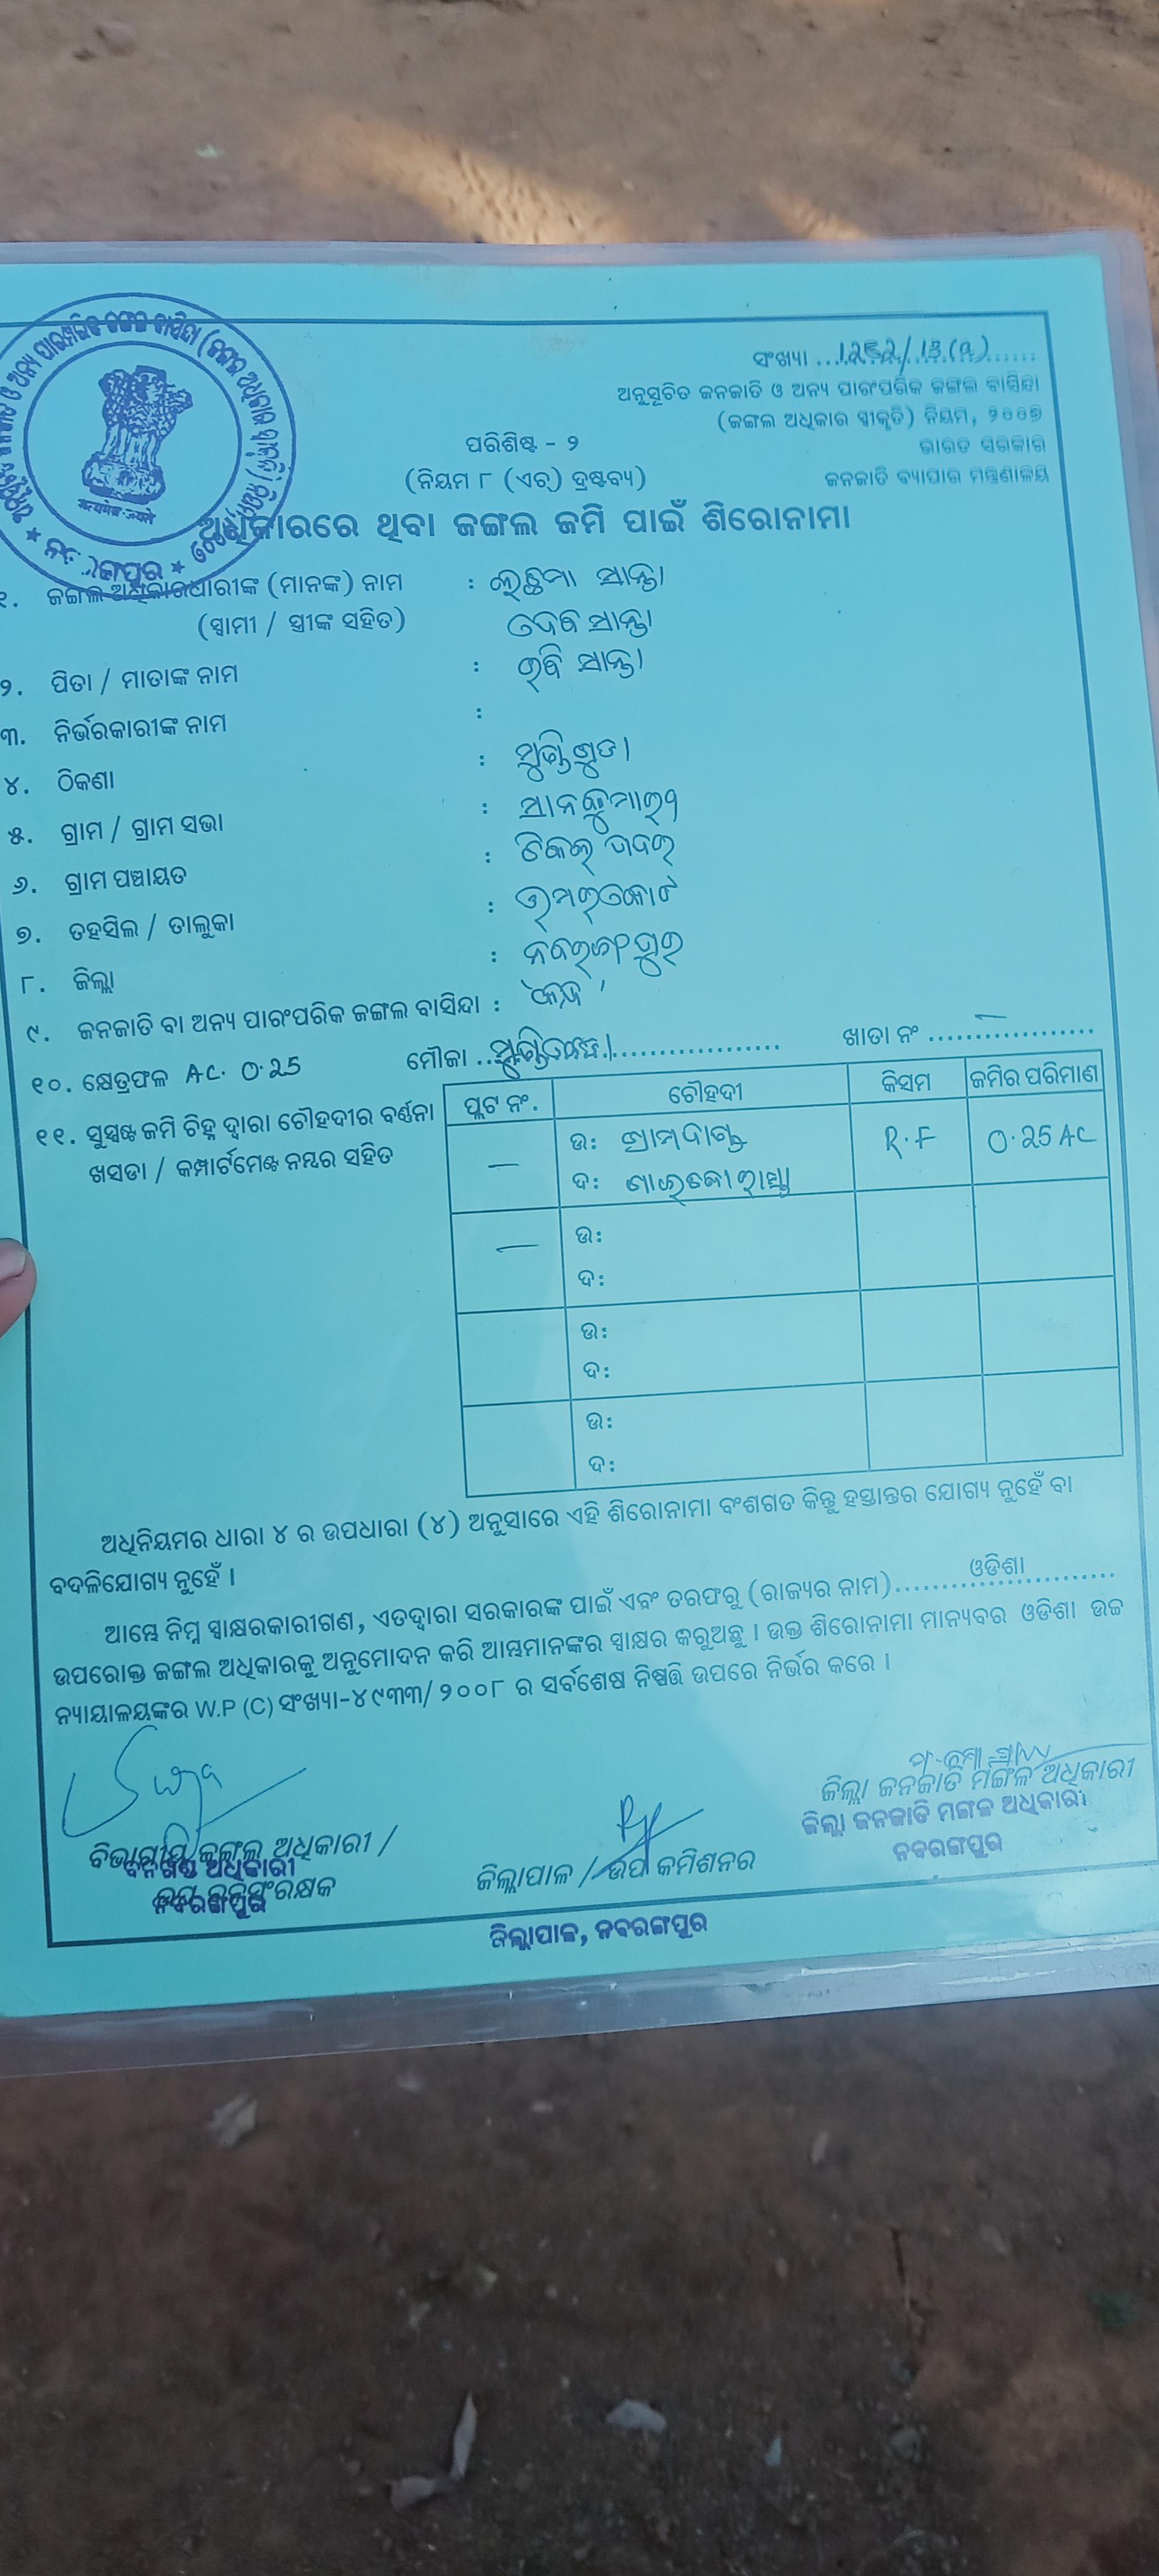 ସଂଖ୍ୟା
ଅନୁସୂଚିତ ଜନଜାତି ଓ ଅନ୍ୟ ପାରଂପରିକ ଜଙ୍ଗଲ ବାସିନ୍ଦା
(ଜଙ୍ଗଲ ଅଧିକାର ସ୍ୱୀକୃତି) ନିୟମ, ୨୦୦୭
ଭାରତ ସରକାର
ଜନଜାତି ବ୍ୟାପାର ମନ୍ତ୍ରଣାଳୟ
ପରିଶିଷ୍ଟ - ୨
(ନିୟମ ୮ (ଏଚ୍) ଦ୍ରଷ୍ଟବ୍ୟ)
ଅଧିକାରରେ ଥିବା ଜଙ୍ଗଲ ଜମି ପାଇଁ ଶିରୋନାମା
୧. ଜଙ୍ଗଲ ଅଧିକାରଧାରୀଙ୍କ (ମାନଙ୍କ) ନାମ : ଲଛମା ସାନ୍ତା
(ସ୍ୱାମୀ / ସ୍ତ୍ରୀଙ୍କ ସହିତ) ଦେବ ସାନ୍ତା
୨. ପିତା / ମାତାଙ୍କ ନାମ : ରବି ସାନ୍ତା
୩. ନିର୍ଭରକାରୀଙ୍କ ନାମ :
୪. ଠିକଣା :
୫. ଗ୍ରାମ / ଗ୍ରାମ ସଭା :
୬. ଗ୍ରାମ ପଞ୍ଚାୟତ :
୭. ତହସିଲ / ତାଲୁକା : ଉମରକୋଟ
୮. ଜିଲ୍ଲା : ନବରଙ୍ଗପୁର
୯. ଜନଜାତି ବା ଅନ୍ୟ ପାରଂପରିକ ଜଙ୍ଗଲ ବାସିନ୍ଦା :
୧୦. କ୍ଷେତ୍ରଫଳ AC. 0.25 ମୌଜା ଖାତା ନଂ —
୧୧. ସୁସ୍ପଷ୍ଟ ଜମି ଚିହ୍ନ ଦ୍ୱାରା ଚୌହଦୀର ବର୍ଣ୍ଣନା
ଖସଡା / କମ୍ପାର୍ଟମେଣ୍ଟ ନମ୍ବର ସହିତ
ପ୍ଲଟ ନଂ. ଚୌହଦୀ କିସମ ଜମିର ପରିମାଣ
— ଉ: R.F 0.25 AC
ଦ:
— ଉ:
ଦ:
ଉ:
ଦ:
ଉ:
ଦ:
ଅଧିନିୟମର ଧାରା ୪ ର ଉପଧାରା (୪) ଅନୁସାରେ ଏହି ଶିରୋନାମା ବଂଶଗତ କିନ୍ତୁ ହସ୍ତାନ୍ତର ଯୋଗ୍ୟ ନୁହେଁ ବା
ବଦଳିଯୋଗ୍ୟ ନୁହେଁ ।
ଆମ୍ଭେ ନିମ୍ନ ସ୍ୱାକ୍ଷରକାରୀଗଣ, ଏତଦ୍ୱାରା ସରକାରଙ୍କ ପାଇଁ ଏବଂ ତରଫରୁ (ରାଜ୍ୟର ନାମ) ଓଡିଶା
ଉପରୋକ୍ତ ଜଙ୍ଗଲ ଅଧିକାରକୁ ଅନୁମୋଦନ କରି ଆମ୍ଭମାନଙ୍କର ସ୍ୱାକ୍ଷର କରୁଅଛୁ । ଉକ୍ତ ଶିରୋନାମା ମାନ୍ୟବର ଓଡିଶା ଉଚ୍ଚ
ନ୍ୟାୟାଳୟଙ୍କର W.P (C) ସଂଖ୍ୟା-୪୯୩୩/ ୨୦୦୮ ର ସର୍ବଶେଷ ନିଷ୍ପତ୍ତି ଉପରେ ନିର୍ଭର କରେ ।
ଜିଲ୍ଲା ଜନଜାତି ମଙ୍ଗଳ ଅଧିକାରୀ
ଜିଲ୍ଲା ଜନଜାତି ମଙ୍ଗଳ ଅଧିକାରୀ
ନବରଙ୍ଗପୁର
ବିଭାଗୀୟ ଜଙ୍ଗଲ ଅଧିକାରୀ /
ବନଖଣ୍ଡ ଅଧିକାରୀ
ନବରଙ୍ଗପୁର
ଜିଲ୍ଲାପାଳ / ଉପ କମିଶନର
ଜିଲ୍ଲାପାଳ, ନବରଙ୍ଗପୁର